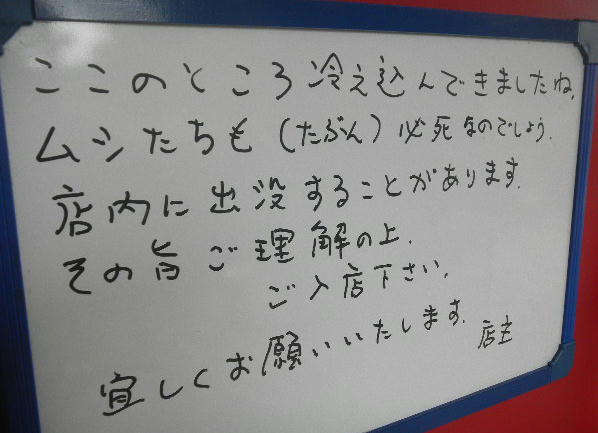 ここのところ冷え込んできましたね。
ムシたちも(たぶん)必死なのでしょう。
店内に出没することがあります。
その旨ご理解の上、
ご入店下さい。
宜しくお願いいたします。
店主